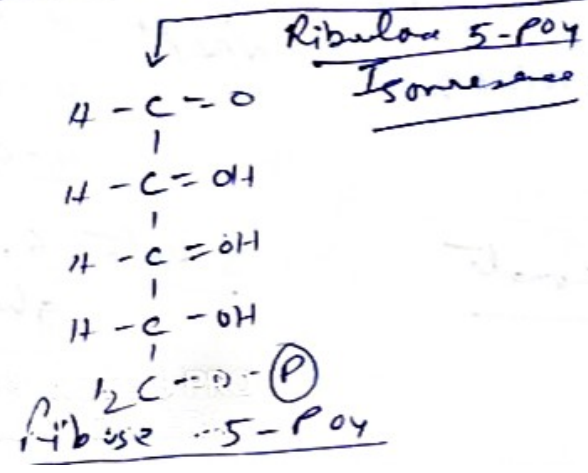 Ribulose 5-PO4
Isomerase
H - C = O
H - C = OH
H - C = OH
H - C - OH
H2C - O - P
Ribose - 5 - PO4